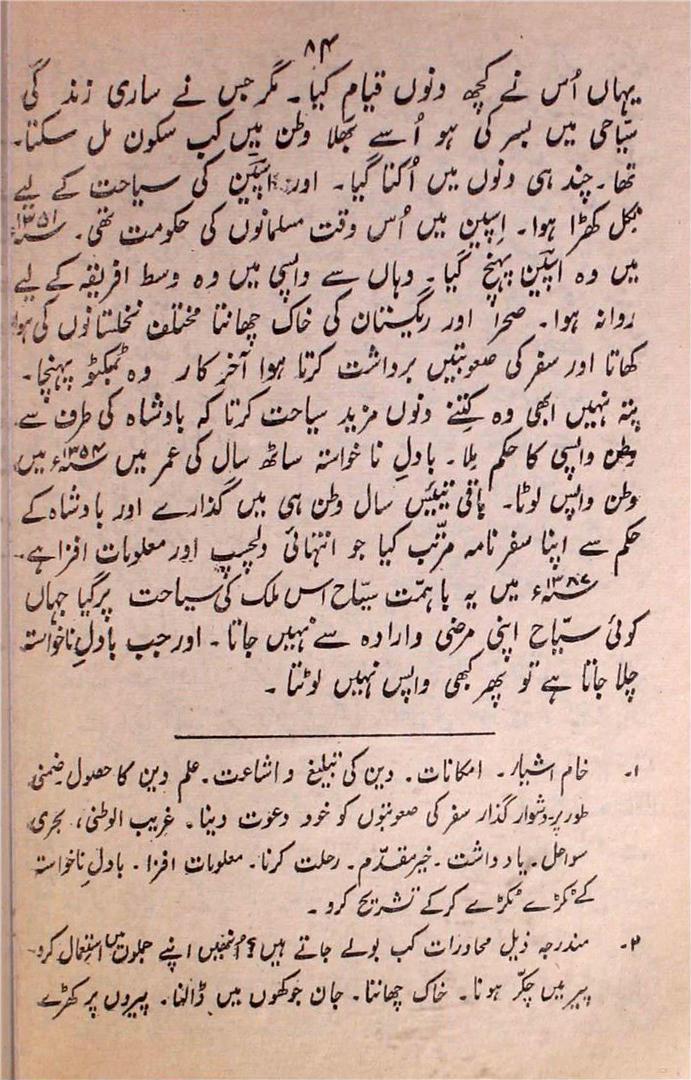 ۸۴
یہاں اُس نے کچھ دنوں قیام کیا۔ مگر جس نے ساری زندگی
سیّاحی میں بسر کی ہو اُسے بھلا وطن میں کب سکون مل سکتا۔
تھا۔ چند ہی دنوں میں اُکتا گیا۔ اور اسپین کی سیاحت کے لیے
نکل کھڑا ہوا۔ اِسپین میں اُس وقت مسلمانوں کی حکومت تھی۔ ۱۳۵۱ء
میں وہ اسپین پہنچ گیا۔ وہاں سے واپسی میں وہ وسط افریقہ کے لیے
روانہ ہوا۔ صحرا اور ریگستان کی خاک چھانتا مختلف نخلستانوں کی ہوا
کھاتا اور سفر کی صعوبتیں برداشت کرتا ہوا آخر کار وہ ٹمبکٹو پہنچا۔
پتہ نہیں ابھی وہ کِتنے دنوں مزید سیاحت کرتا کہ بادشاہ کی طرف سے
وطن واپسی کا حکم مِلا۔ بادلِ ناخواستہ ساٹھ سال کی عمر میں ۱۳۵۴ء میں
وطن واپس لوٹا۔ باقی تیئیس سال وطن ہی میں گذارے اور بادشاہ کے
حکم سے اپنا سفر نامہ مرتّب کیا جو انتہائی دلچسپ اور معلومات افزا ہے۔
۱۳۸۷ء میں یہ باہمّت سیّاح اس ملک کی سیاحت پر گیا جہاں
کوئی سیّاح اپنی مرضی و ارادہ سے نہیں جاتا۔ اور جب بادلِ ناخواستہ
چلا جاتا ہے تو پھر کبھی واپس نہیں لوٹتا۔
۱۔ خام اشیار۔ امکانات۔ دین کی تبلیغ و اشاعت۔ علم دین کا حصول۔ ضمنی
طور پر۔ دشوار گذار سفر کی صعوبتوں کو خود دعوت دینا۔ غریب الوطنی، بحری
سواحل۔ یادداشت۔ خیر مقدّم۔ رحلت کرنا۔ معلومات افزا۔ بادلِ ناخواستہ
کے ٹکڑے ٹکڑے کر کے تشریح کرو۔
۲۔ مندرجہ ذیل محاورات کب بولے جاتے ہیں؟ اُنھیں اپنے جملوں میں استعمال کرو۔
پیر میں چکّر ہونا۔ خاک چھاننا۔ جان جوکھوں میں ڈالنا۔ پیروں پر کھڑے